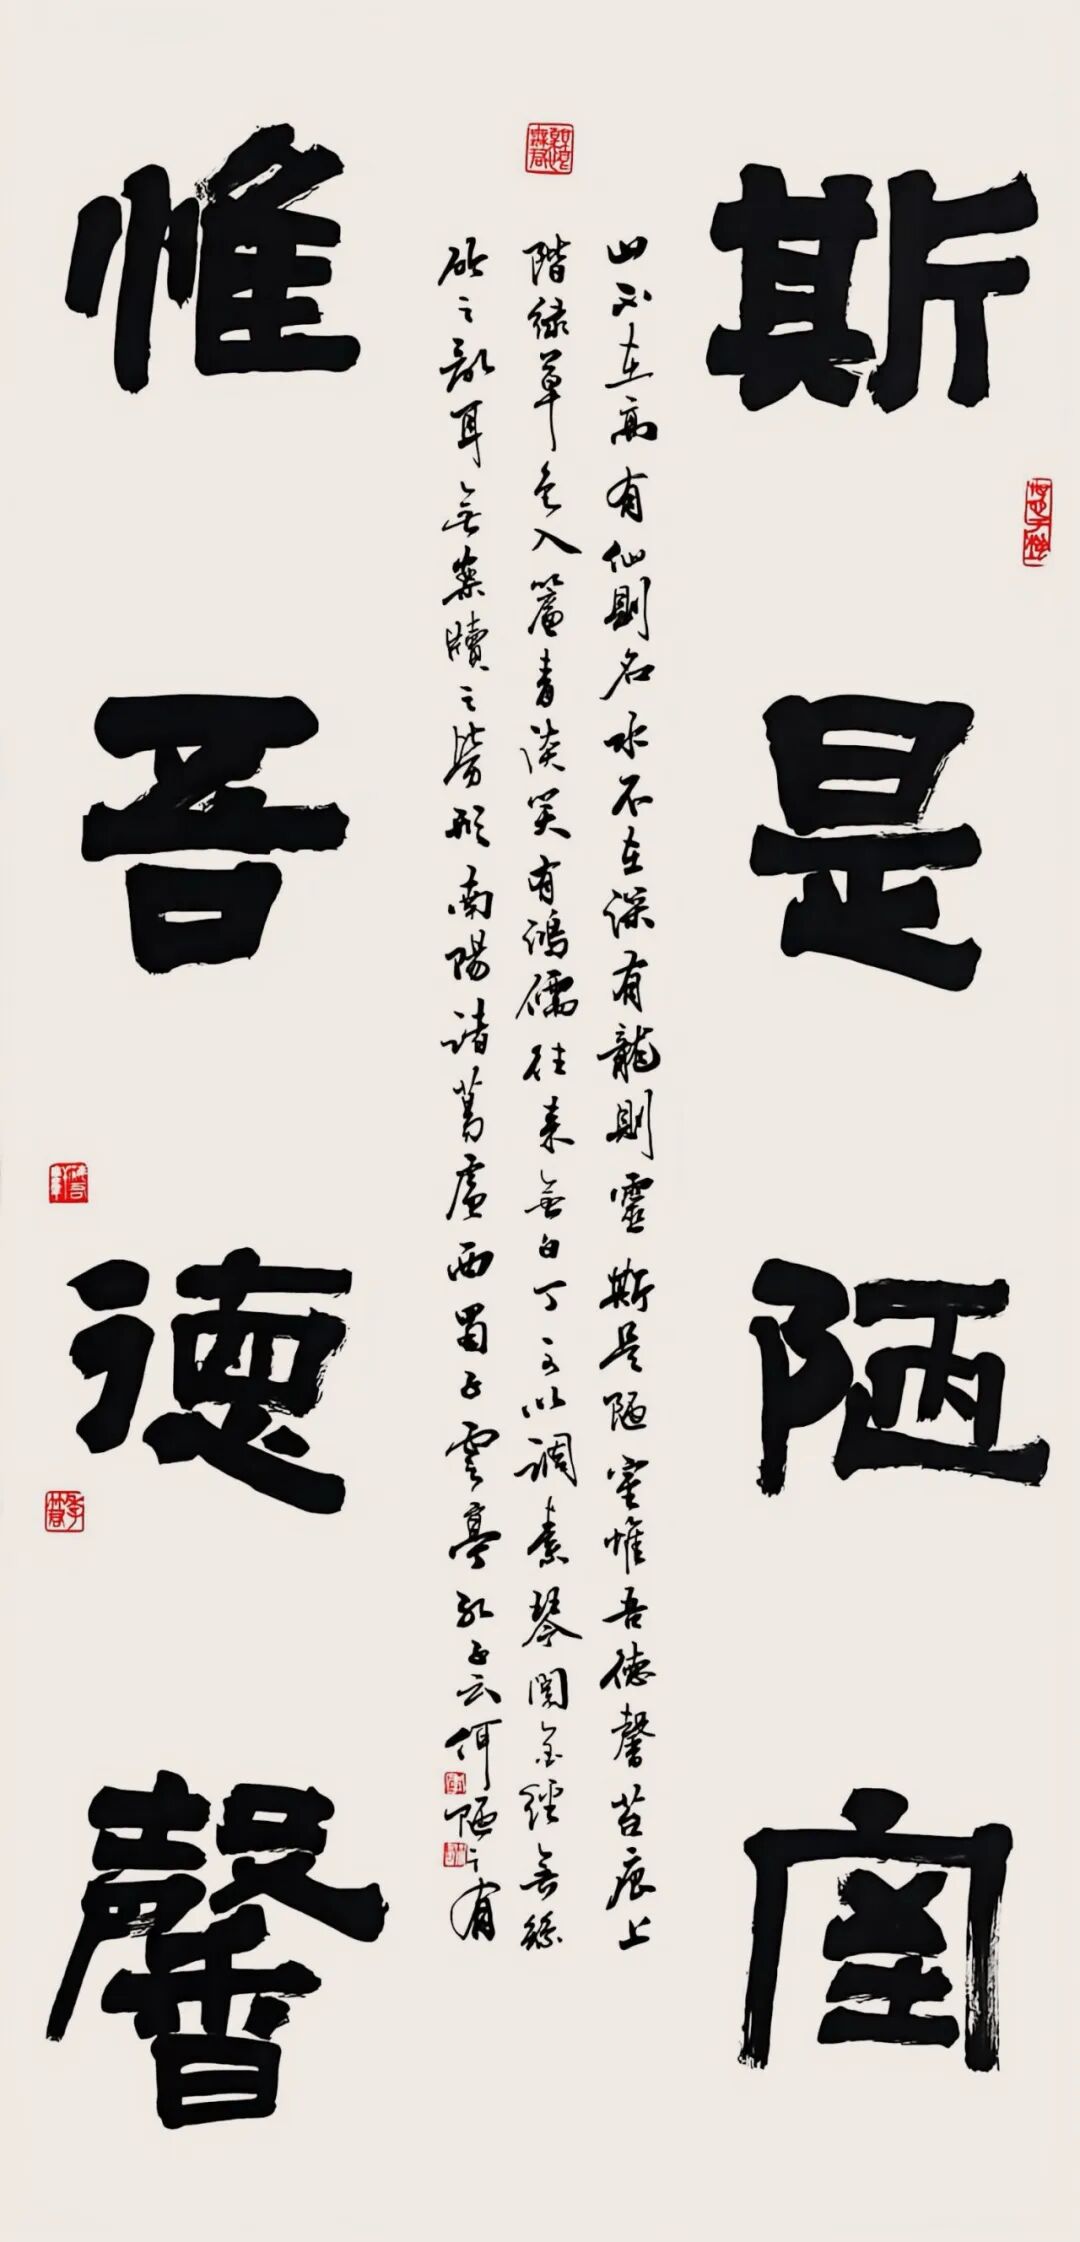 斯是陋室
山不在高有仙則名水不在深有龍則靈斯是陋室惟吾德馨苔痕上
階綠草色入簾青談笑有鴻儒往來無白丁可以調素琴閱金經無絲
竹之亂耳無案牘之勞形南陽諸葛廬西蜀子雲亭孔子云何陋之有
惟吾德馨